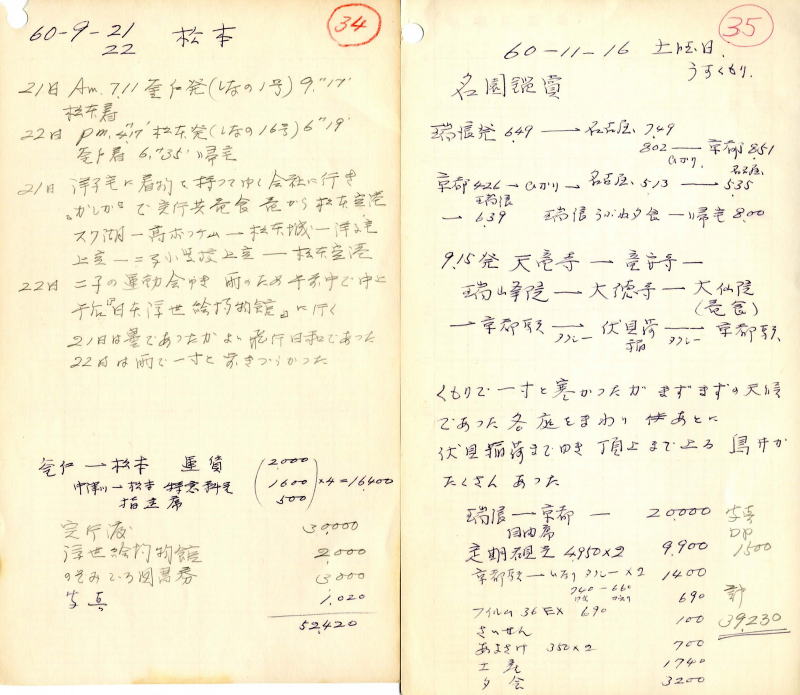 34
60-9-21
22 松本
21日 Am. 7.11 釜戸発(しなの1号) 9."17'
松本着
22日 pm. 4."17' 松本発(しなの16号) 6"19'
釜戸着 6."35' 帰宅
21日 洋子宅に着物を持ってゆく会社に行き
で定行共昼食 昼から松本空港
スワ湖ー高ボッチ ー松本城ー洋子宅
上空ー小学校上空ー松本空港
22日 二子の運動会ゆき 雨のため午前中で中止
午后『日本浮世絵博物館』に行く
21日は曇であったがよい飛行日和であった
22日は雨で一寸と歩きづらかった
釜戸ー松本 運賃 2,000
中津川ー松本 特急料金 1600 ×4=16,400
指定席 500
定行渡 30,000
浮世絵博物館 2,000
3,000
写真 1,020
52,420
35
60-11-16 土曜日.
うすくもり.
名園鑑賞
瑞浪発 6.49 → 名古屋 7.49
8.02 → 京都 8.51
ひかり.
京都 4.26 → ひかり → 名古屋 5.13 → 名古屋 5.35
→ 瑞浪 6.39 瑞浪 夕食 ー 帰宅 8.00
9.15発 天竜寺 → 竜安寺 ー
瑞峰院 → 大徳寺 → 大仙院
(昼食)
→ 京都駅 → タクシー 伏見稲荷 → タクシー 京都駅
くもりで一寸と寒かったがまずまずの天候
であった 各庭をまわり あとに
伏見稲荷までゆき 頂上まで上る 鳥井が
たくさんあった
瑞浪ー京都 ー 20,000
自由席
定期観光 4,950×2 9,900
京都駅ーいなり タクシー×2 1400
740-660
ゆき かえり
フイルム 36EX 690 690
さいせん 100
あまざけ 350×2 700
土産 1740
夕食 3200
写真
DP
1500
計
39,230